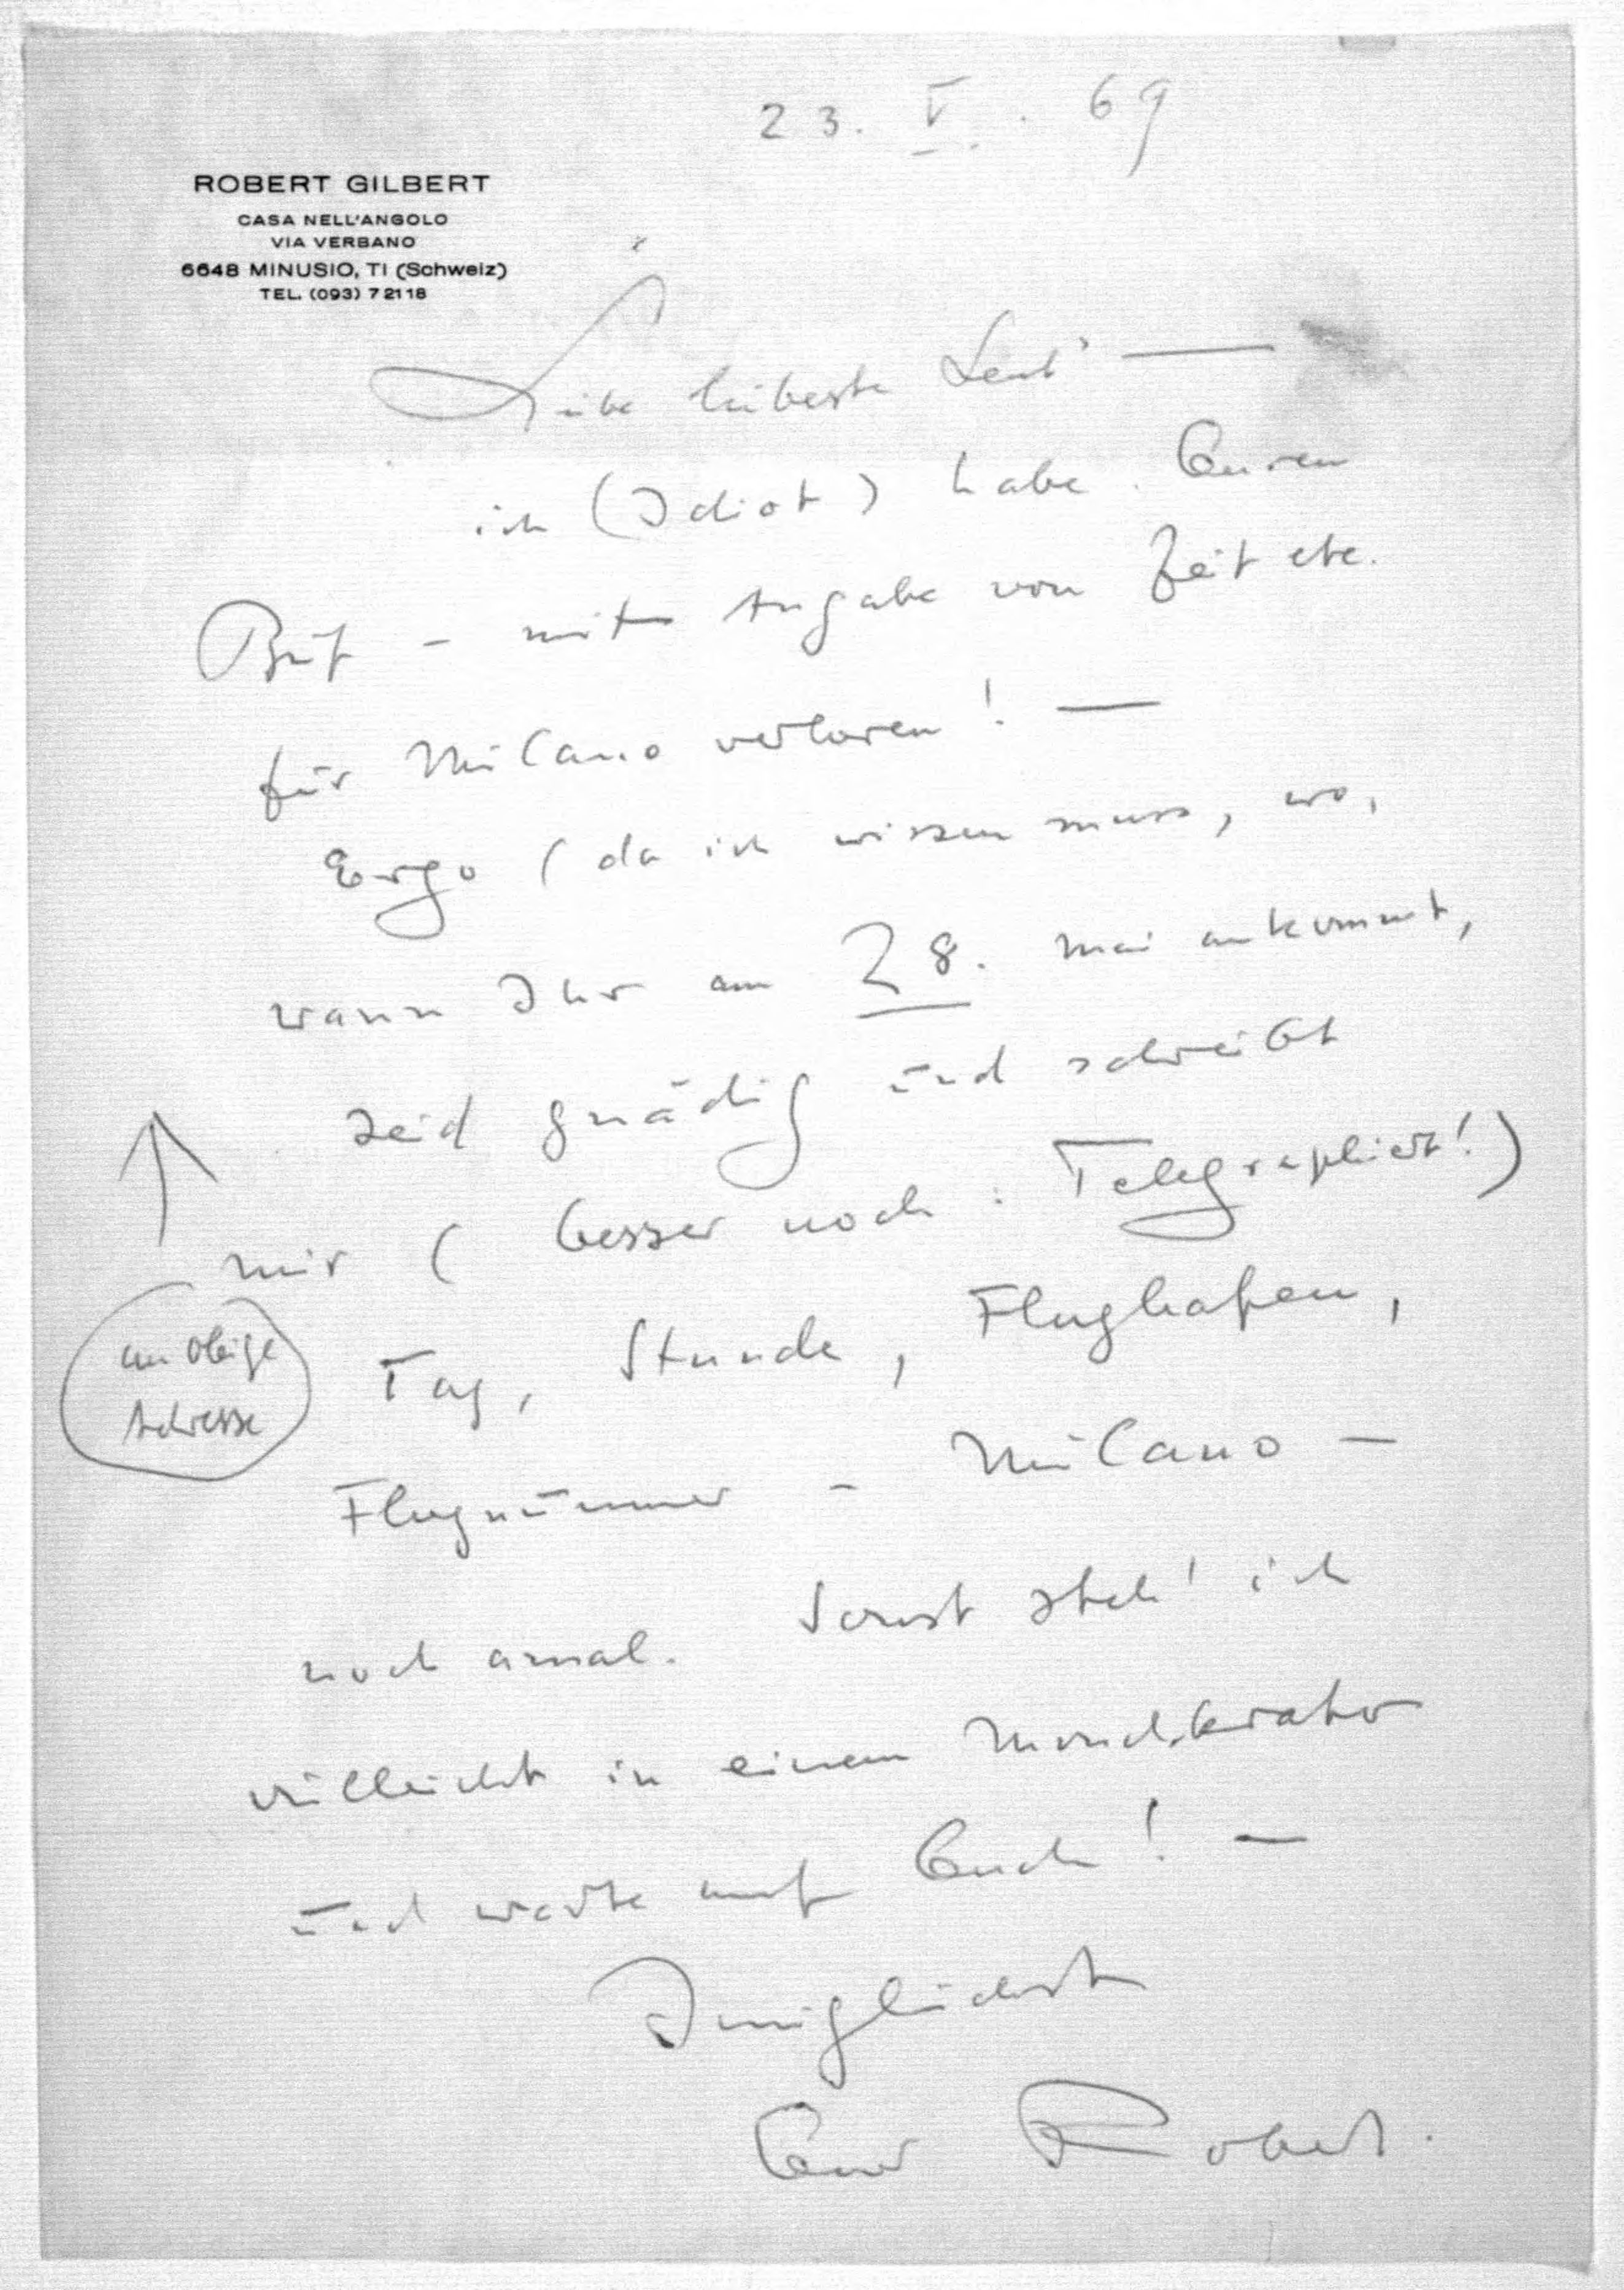 23. V. 69
ROBERT GILBERT
CASA NELL'ANGOLO
VIA VERBANO
6648 MINUSIO, TI (Schweiz)
TEL. (093) 7 21 18
Liebe liebeste Leut' —
ich (Idiot) habe Euren
Brief - mit Angabe von Zeit etc.
für Milano verloren! —
Ergo (da ich wissen muss, wo,
wann Ihr am 28. Mai ankommt,
seid gnädig und schreibt
mir (besser noch: Telegraphiert!)
an obige
Adresse
Tag, Stunde, Flughafen,
Flugnummer - Milano -
noch amal. Sonst steh' ich
vielleicht in einem Mondkrater
und warte auf Euch! —
Inniglichst
Euer Robert.